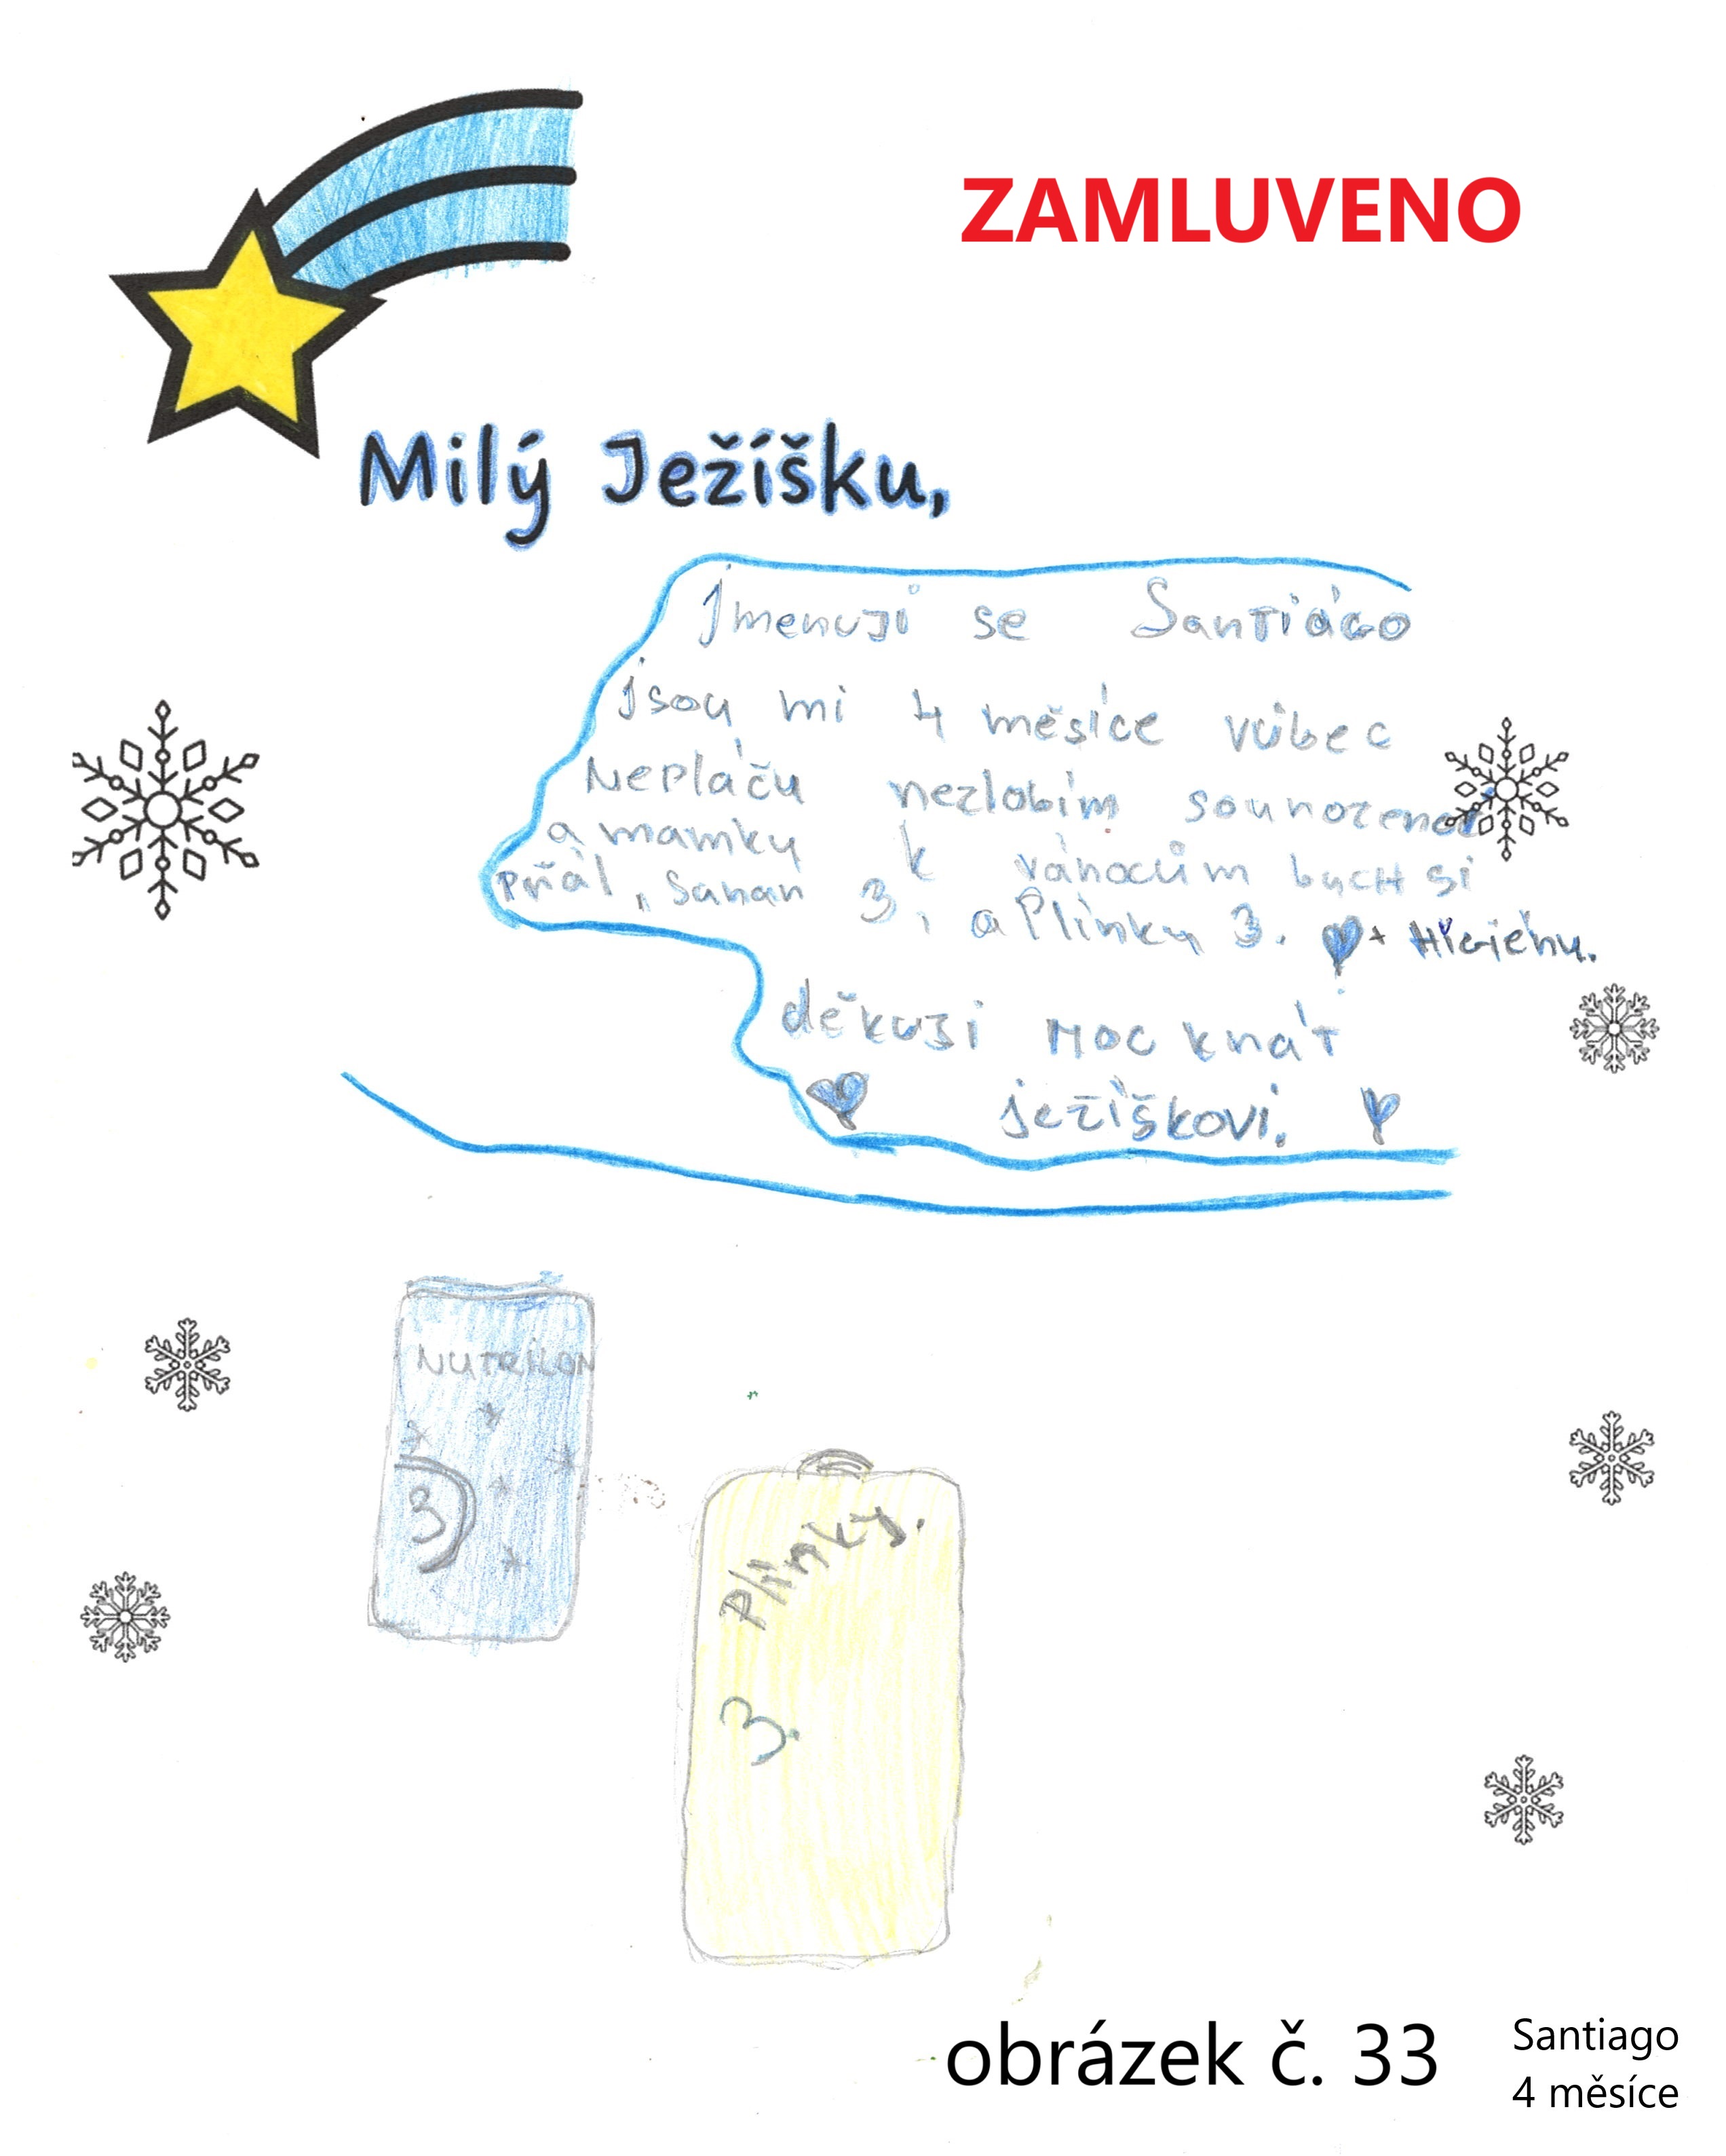 ZAMLUVENO
Milý Ježíšku,
Jmenuji se Santiágo
jsou mi 4 měsíce vůbec
Nepláču nezlobím sounozence
a mamku k vánocům bych si
přál, Sanan 3, a Plínky 3. + Higiénu.
děkuji moc knát
ježíškovi.
NUTRILON
3
Plínky.
3.
obrázek č. 33
Santiago
4 měsíce